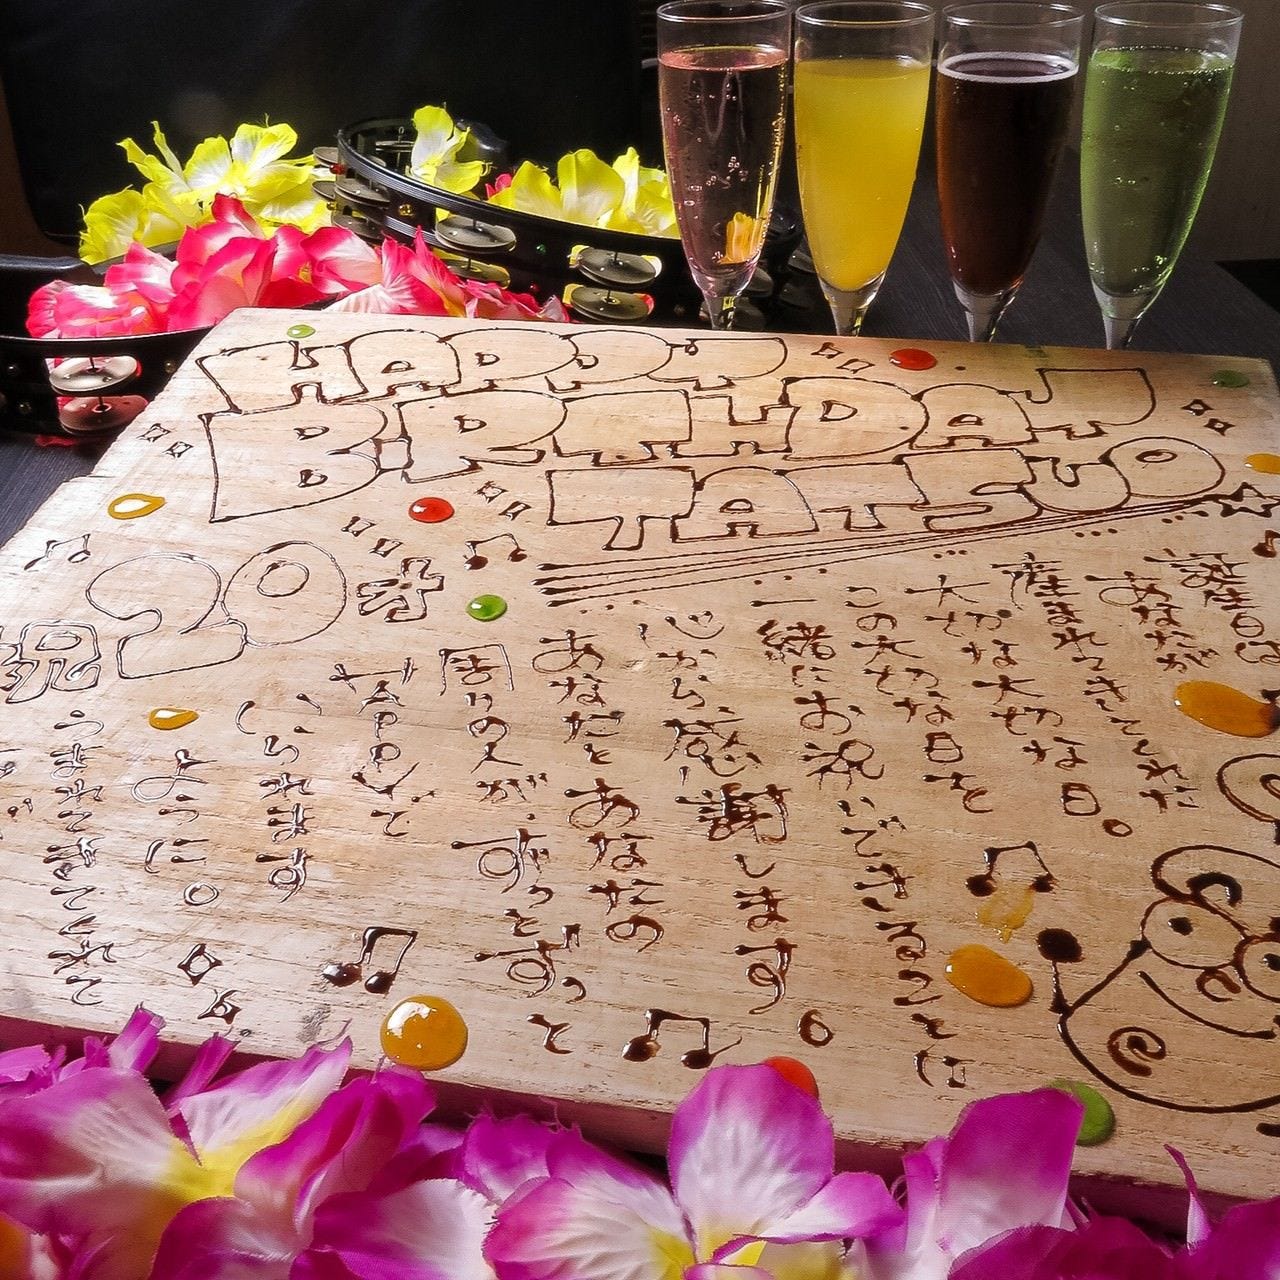 HAPPY
BIRTHDAY
TATSUO
20才
祝
誕生日は
あなたが
産まれてきてくれた
大切な大切な日。
この大切な日を
一緒にお祝いできることに
心から感謝します。
あなたとあなたの
周りの人がずっとずっと
幸せでいられますように。
うまれてきてくれて